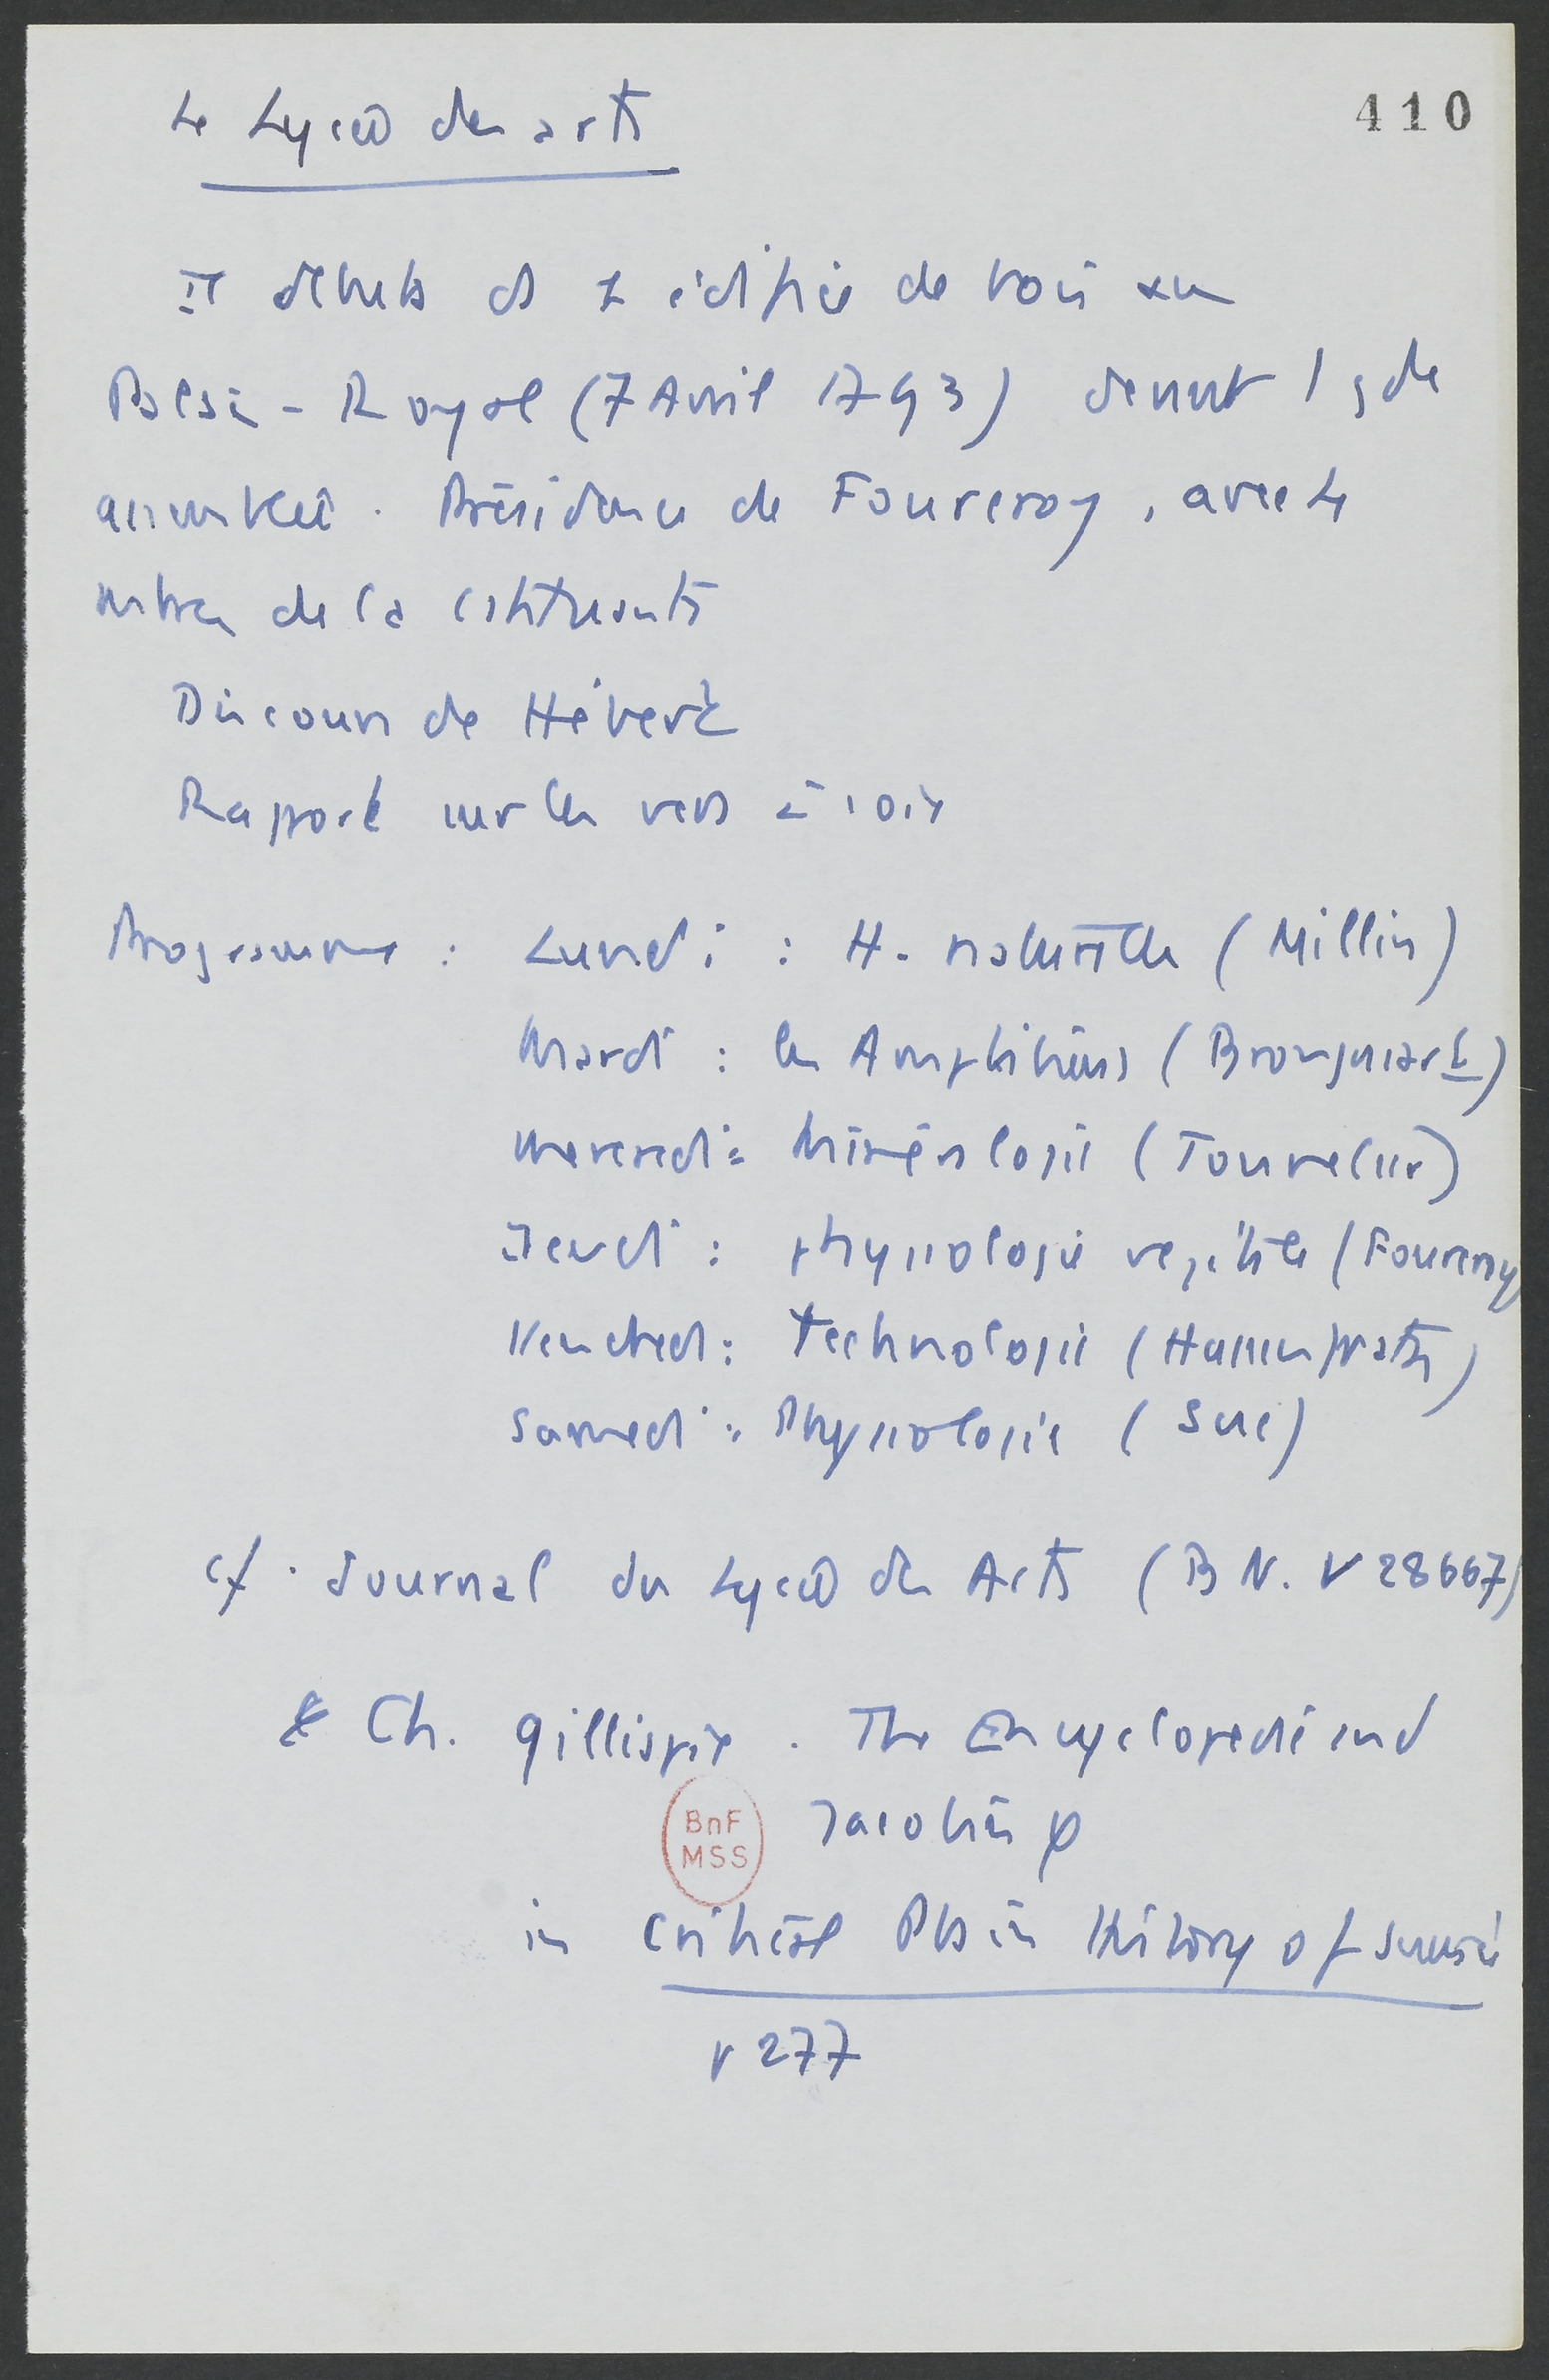 410
Le Lycée des arts
Il débute ds 1 édifice de bois au
Palais-Royal (7 Avril 1793) devant 1 gde
assemblée. Présidence de Fourcroy, avec le
de la
Discours de Hébert
Rapport sur les vers à soie
Programme : Lundi : H. naturelle (Millin)
Mardi : les Amphibiens (Brongniart)
Mercredi : Minéralogie (Tonnelier)
Jeudi : physiologie végétale (Fourcroy
Vendredi : Technologie (Hassenfratz)
Samedi : Physiologie (Sue)
cf. Journal du Lycée des Arts (BN. V 28667)
& Ch. Gillispie. The Encyclopedie and
Jacobin φ
BnF
MSS
in Critical Pbs in History of Science
p 277